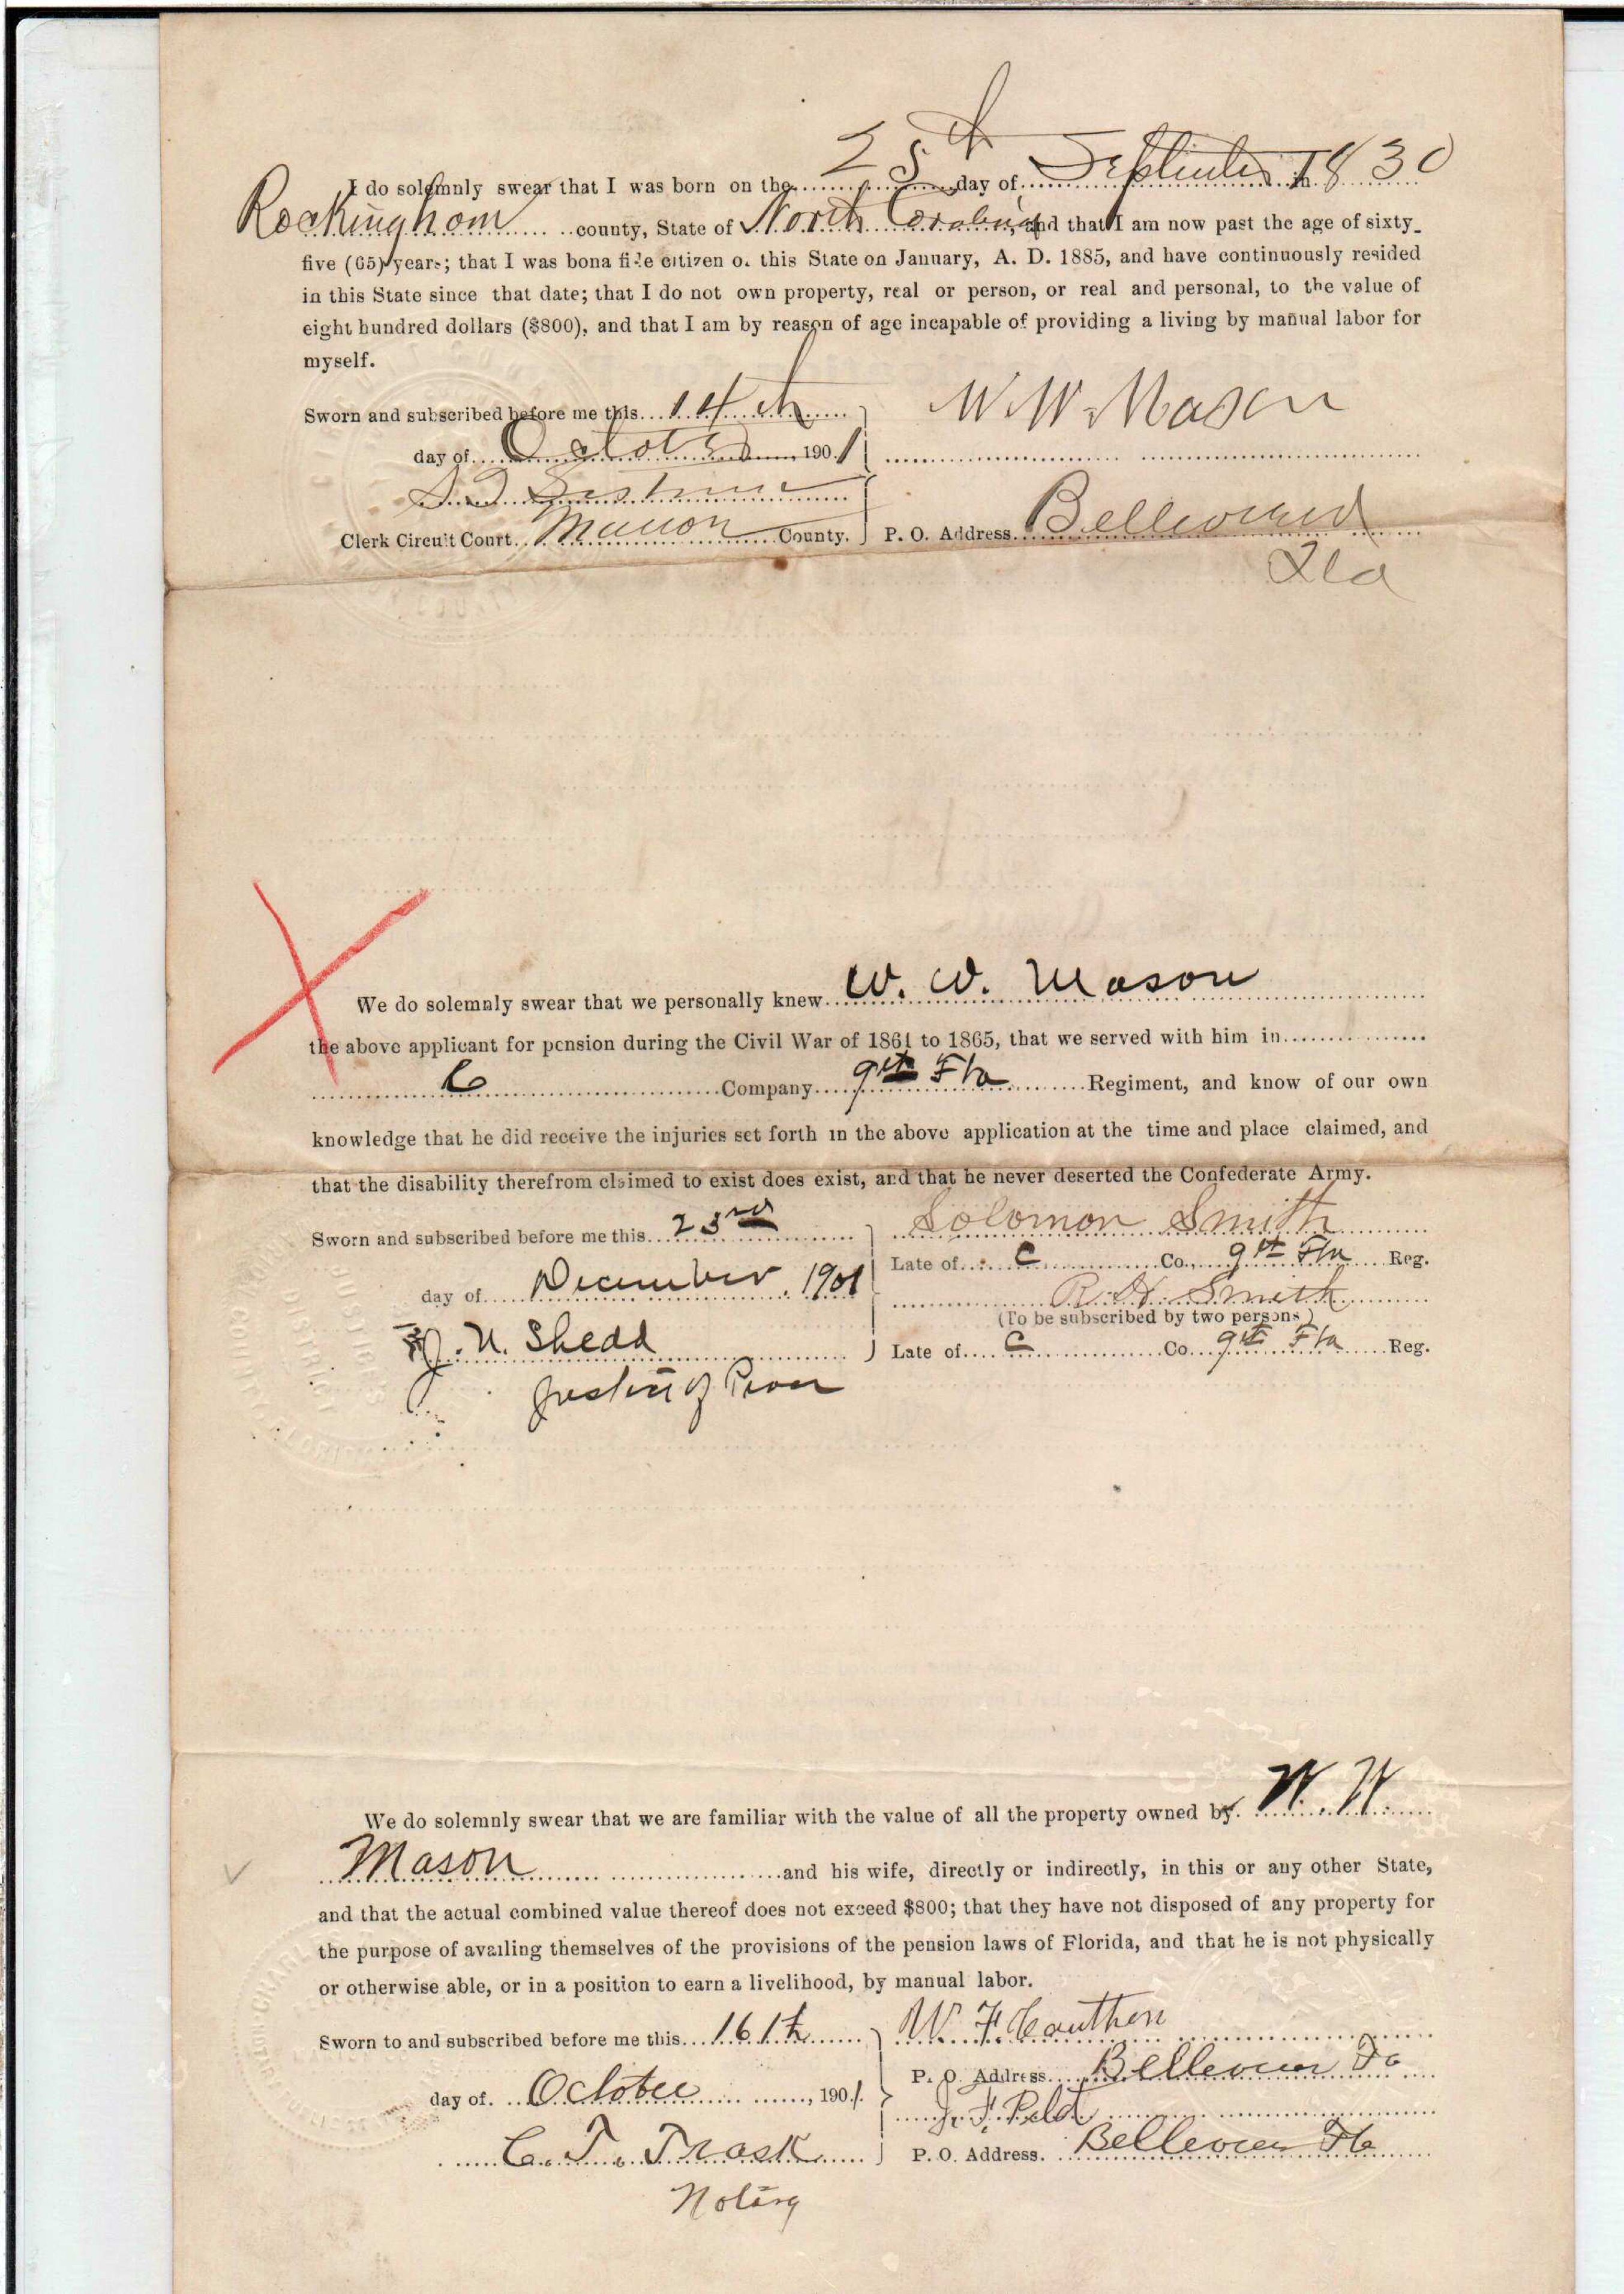 I do solemnly swear that I was born on the 25th day of September in 1830
Rockingham county, State of North Carolina, and that I am now past the age of sixty-
five (65) years; that I was bona fide citizen of this State on January, A. D. 1885, and have continuously resided
in this State since that date; that I do not own property, real or person, or real and personal, to the value of
eight hundred dollars ($800), and that I am by reason of age incapable of providing a living by manual labor for
myself.
Sworn and subscribed before me this 14th
W. W. Mason
day of October 1901
Clerk Circuit Court Marion County. P. O. Address Belleview
Fla
We do solemnly swear that we personally knew W. W. Mason
the above applicant for pension during the Civil War of 1861 to 1865, that we served with him in
C Company 9th Fla Regiment, and know of our own
knowledge that he did receive the injuries set forth in the above application at the time and place claimed, and
that the disability therefrom claimed to exist does exist, and that he never deserted the Confederate Army.
Sworn and subscribed before me this 23rd
Solomon Smith
Late of C Co., 9th Fla Reg.
day of December, 1901
R. H. Smith
(To be subscribed by two persons)
J. N. Shedd
Late of C Co. 9th Fla Reg.
Justice of Peace
JUSTICE
DISTRICT
We do solemnly swear that we are familiar with the value of all the property owned by W. W.
Mason and his wife, directly or indirectly, in this or any other State,
and that the actual combined value thereof does not exceed $800; that they have not disposed of any property for
the purpose of availing themselves of the provisions of the pension laws of Florida, and that he is not physically
or otherwise able, or in a position to earn a livelihood, by manual labor.
Sworn to and subscribed before me this 16th
W. F. Cauthen
P. O. Address Belleview Fla
day of October, 1901.
J. F.
C. T. Trask
P. O. Address. Belleview Fla
Notary